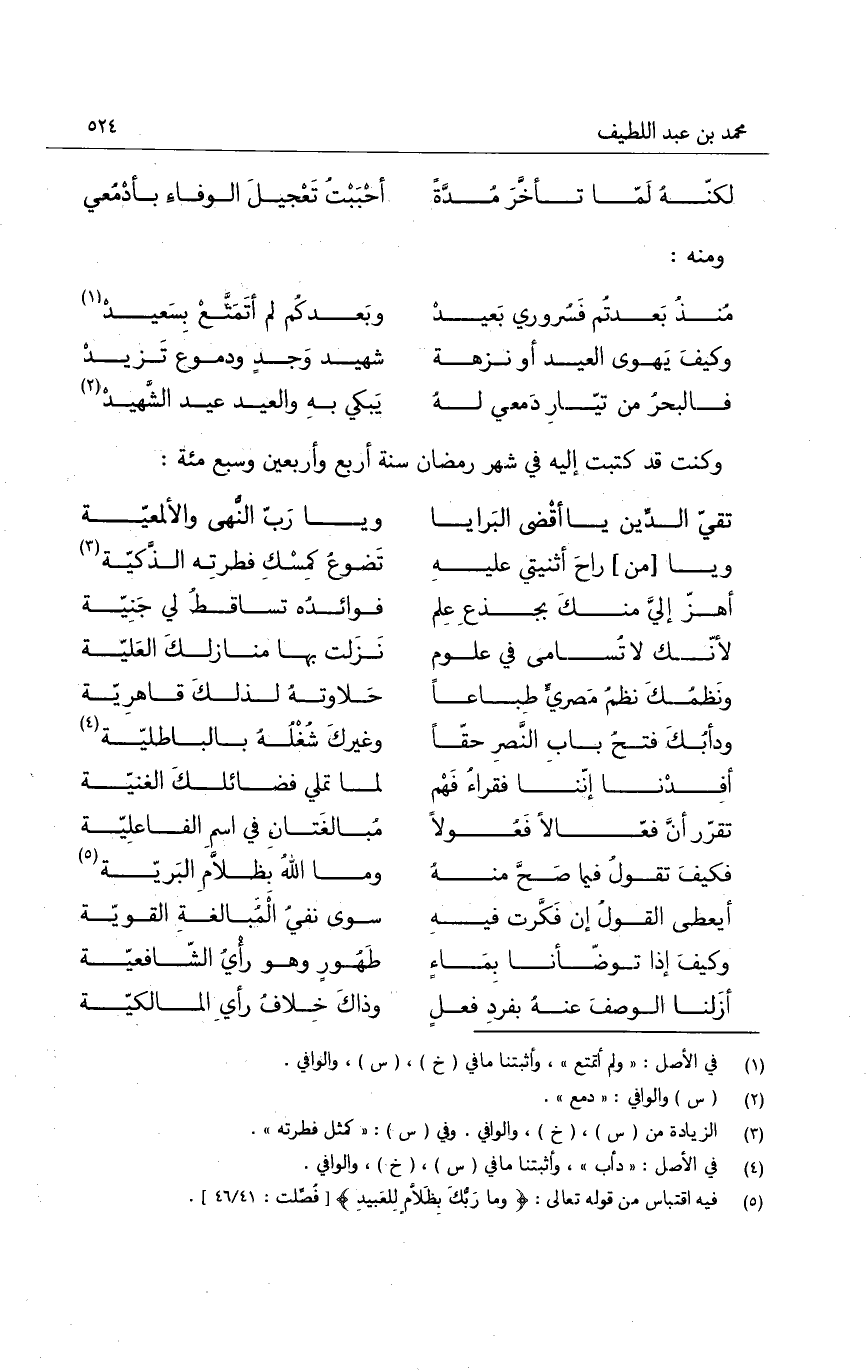 محمد بن عبد اللطيف ٥٢٤
لكنّهُ لَمّا تأخَّرَ مُدَّةً أحْبَبْتُ تَعْجيلَ الوفاء بأدْمُعي
ومنه :
مُنذُ بَعدتُم فَسُروري بَعيدْ وبَعدكُم لم أتَمَتَّعْ بِسَعيدْ(١)
وكيفَ يَهوى العيد أو نزهة شهيد وَجدٍ ودموع تَزيدْ
فالبحرُ من تيّار دَمعي لهُ يَبكي به والعيد عيد الشَّهيدْ(٢)
وكنت قد كتبت إليه في شهر رمضان سنة أربع وأربعين وسبع مئة :
تقيّ الدِّين ياأقْضى البَرايا ويا رَبّ النُّهى والألمعيّة
ويا [من] راحَ أثنيتي عليه تَضوعُ كمِسْكِ فطرتِه الذَّكيّة(٣)
أهزّ إليَّ منكَ بجذعِ علمٍ فوائدُه تساقطُ لي جَنِيّة
لأنّك لاتُسامى في علومٍ نَزلت بها منازلكَ العَليّة
ونَظمُكَ نظمُ مَصريٍّ طباعاً حَلاوتهُ لذلكَ قاهريّة
ودأبُكَ فتحُ بابِ النَّصرِ حقّاً وغيركَ شُغْلُهُ بالباطليّة(٤)
أفدْنا إنّنا فقراءُ فَهْم لما تملي فضائلكَ الغنيّة
تقرّر أنَّ فعّالاً فَعُولاً مُبالغتَان في اسمِ الفاعليّة
فكيفَ تقولُ فيما صَحَّ منهُ وما اللهُ بظلاَّمِ البَريّة(٥)
أيعطى القولُ إن فكَّرت فيه سوى نفيُ الْمُبالغةِ القويّة
وكيفَ إذا توضّأنا بمَاءٍ طَهُورٍ وهو رأْيُ الشّافعيّة
أزَلنا الوصفَ عنهُ بفردِ فعلٍ وذاكَ خلافُ رأيِ المالكيّة
(١) في الأصل : « ولم أتمتع » ، وأثبتنا مافي ( خ ) ، ( س ) ، والوافي .
(٢) ( س ) والوافي : « دمع » .
(٣) الزيادة من ( س ) ، ( خ ) ، والوافي . وفي ( س ) : « كمثل فطرته » .
(٤) في الأصل : « دأب » ، وأثبتنا مافي ( س ) ، ( خ ) ، والوافي .
(٥) فيه اقتباس من قوله تعالى : ﴿ وما رَبُّكَ بِظَلاَّمٍ لِلعَبيدِ ﴾ [ فُصّلت : ٤٦/٤١ ] .